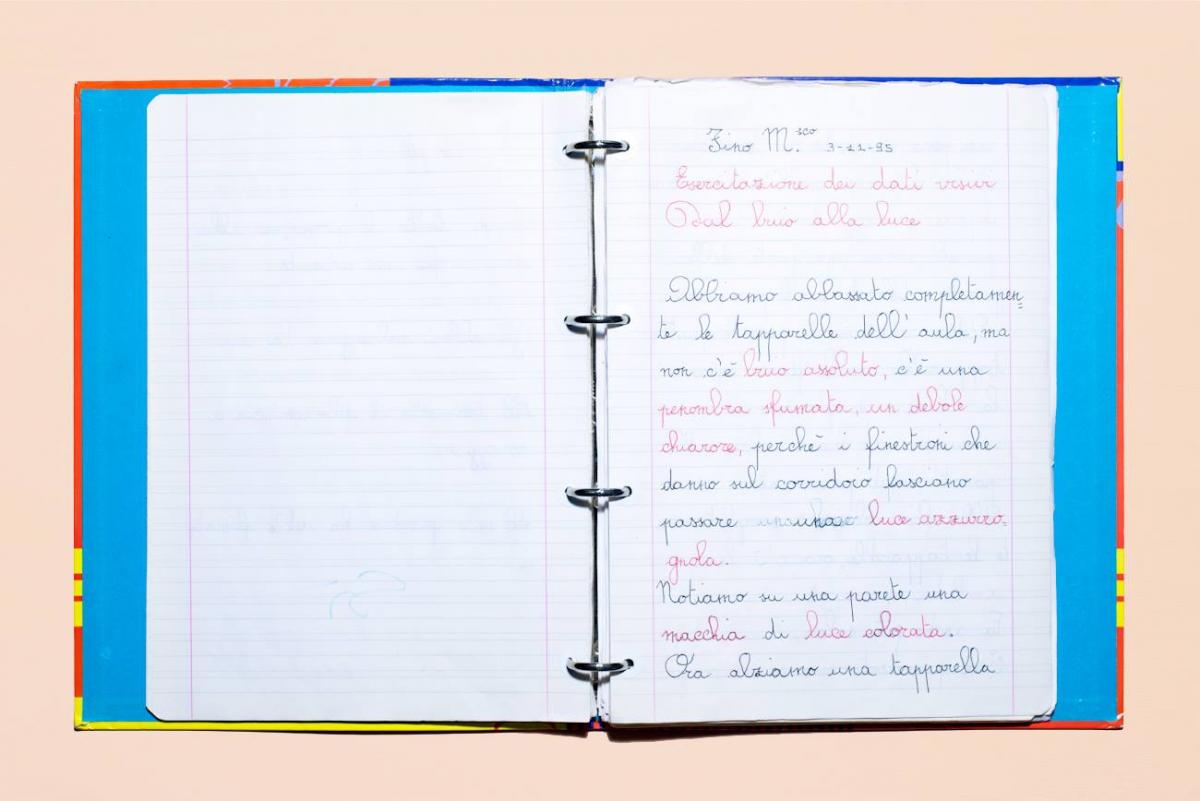 Fino M.sco 3-11-95
Esercitazione dei dati visivi
Dal buio alla luce
Abbiamo abbassato completamen=
te le tapparelle dell'aula, ma
non c'è buio assoluto, c'è una
penombra sfumata, un debole
chiarore, perchè i finestroni che
danno sul corridoio lasciano
passare una luce azzurro=
gnola.
Notiamo su una parete una
macchia di luce colorata.
Ora alziamo una tapparella